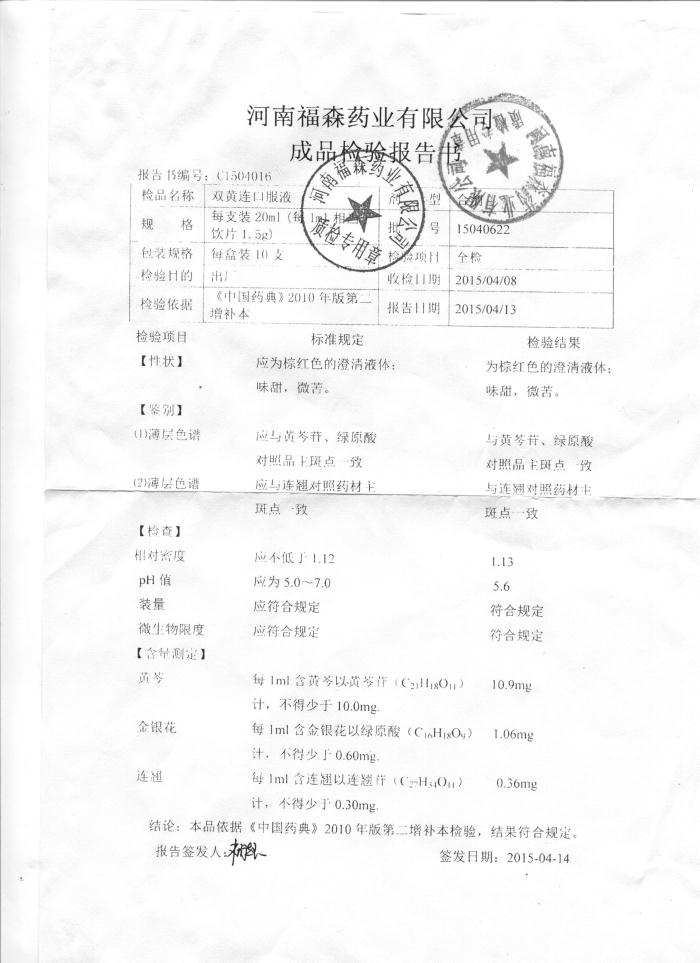 河南福森药业有限公司
成品检验报告书
报告书编号：C1504016
检品名称 双黄连口服液 剂 型
规 格 每支装 20ml (每 1ml 相 饮片 1.5g) 批 号 15040622
包装规格 每盒装 10 支 检验项目 全检
检验目的 出厂 收检日期 2015/04/08
检验依据 《中国药典》2010 年版第二增补本 报告日期 2015/04/13
检验项目 标准规定 检验结果
【性状】 应为棕红色的澄清液体； 为棕红色的澄清液体；
味甜，微苦。 味甜，微苦。
【鉴别】
(1)薄层色谱 应与黄芩苷、绿原酸 与黄芩苷、绿原酸
对照品主斑点一致 对照品主斑点一致
(2)薄层色谱 应与连翘对照药材主 与连翘对照药材主
斑点一致 斑点一致
【检查】
相对密度 应不低于 1.12 1.13
pH 值 应为 5.0～7.0 5.6
装量 应符合规定 符合规定
微生物限度 应符合规定 符合规定
【含量测定】
黄芩 每 1ml 含黄芩以黄芩苷（C₂₁H₁₈O₁₁） 10.9mg
计，不得少于 10.0mg.
金银花 每 1ml 含金银花以绿原酸（C₁₆H₁₈O₉） 1.06mg
计，不得少于 0.60mg.
连翘 每 1ml 含连翘以连翘苷（C₂₇H₃₄O₁₁） 0.36mg
计，不得少于 0.30mg.
结论：本品依据《中国药典》2010 年版第二增补本检验，结果符合规定。
报告签发人： 签发日期：2015-04-14
河南福森药业有限公司
质检专用章
河南福森药业有限公司
质检专用章